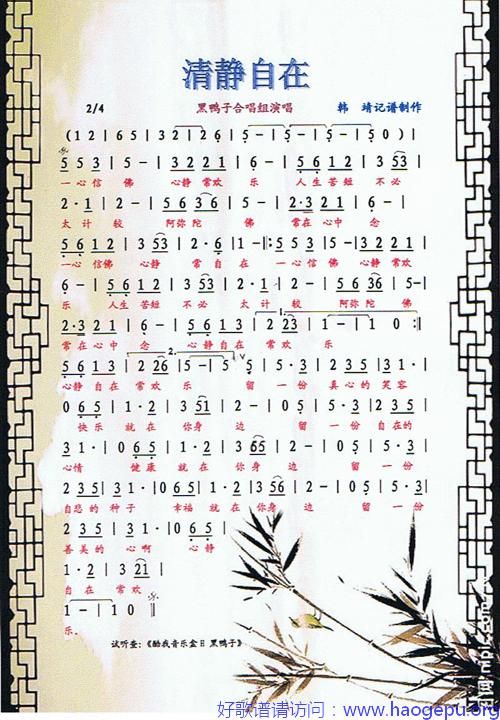 清静自在
2/4 黑鸭子合唱组演唱 韩 靖记谱制作
(1 2 | 6 5 | 3 2 | 2 6 | 5 - | 5 - | 5 - | 5 0) |
5 5 3 | 5 - | 3 2 2 1 | 6 - | 5 6 1 2 | 3 5 3 |
一心信 佛 心静 常欢 乐 人生 苦短 不必
2 · 1 | 2 - | 5 6 3 6 | 5 - | 2 · 3 2 1 | 6 - |
太 计 较 阿弥 陀 佛 常在 心中 念
5 6 1 2 | 3 5 3 | 2 · 6 | 1 - :‖: 5 5 3 | 5 - | 3 2 2 1 |
一心 信佛 心静 常 自 在 一心信 佛 心静 常欢
6 - | 5 6 1 2 | 3 5 3 | 2 · 1 | 2 - | 5 6 3 6 | 5 - |
乐 人生 苦短 不必 太 计 较 阿弥 陀 佛
2 · 3 2 1 | 6 - | 5 6 1 3 | 2 2 3 | 1 - | 1 0 :‖
常在 心中 念 心静 自在 常 欢 乐
5 6 1 3 | 2 2 6 | 5 - | 5 5 | 5 · 3 | 2 3 5 | 3 1 · |
心静 自在 常 欢 乐 留 一 份 真心的 笑容
0 6 5 | 1 · 2 | 3 5 1 | 2 - | 0 5 | 5 · 3 | 2 3 5 |
快乐 就 在 你身 边 留 一 份 自在的
3 1 · | 0 6 5 | 1 · 2 | 3 6 5 | 2 - | 0 5 | 5 · 3 |
心情 健康 就 在 你身 边 留 一 份
2 3 5 | 3 1 · | 0 6 5 | 1 · 2 | 3 5 6 | 2 - | 0 5 | 5 · 3 |
自悲的 种子 幸福 就 在 你身 边 留 一 份
2 3 5 | 3 1 · | 0 6 5 |
善美的 心啊 心静
1 · 2 | 3 2 1 |
自 在 常欢
1 - | 1 0 ‖
乐。
试听查：《酷我音乐盒日 黑鸭子》
好歌谱请访问：www.haogepu.org